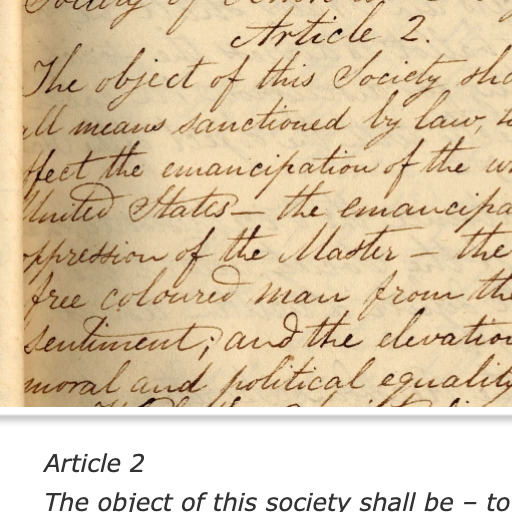 Society of
Article 2.
The object of this Society sha
all means sanctioned by law, to
ffect the emancipation of the
United States — the emancipa
oppression of the Master — the
free coloured man from the
sentiment; and the elevation
moral and political equality
Article 2
The object of this society shall be – to